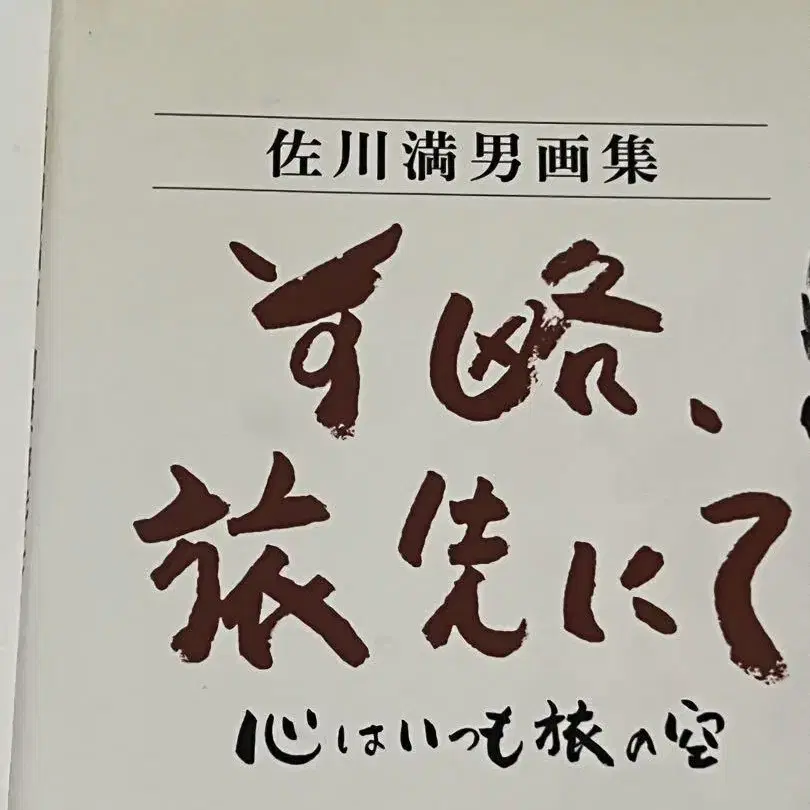 佐川満男画集
前略、
旅先にて
心はいつも旅の空